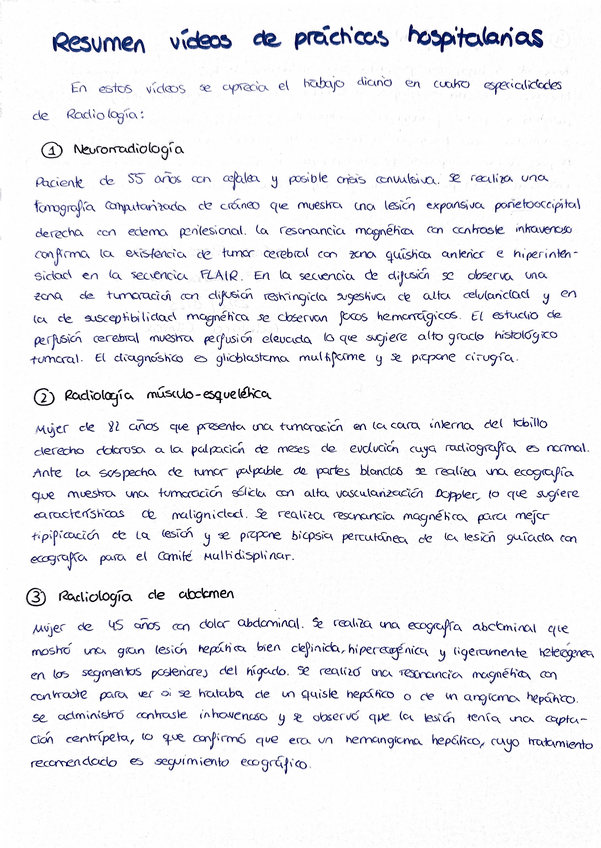 Resumen vídeos de prácticas hospitalarias
En estos vídeos se aprecia el trabajo diario en cuatro especialidades
de Radiología:
① Neurorradiología
Paciente de 55 años con cefalea y posible crisis convulsiva. Se realiza una
tomografía computarizada de cráneo que muestra una lesión expansiva parietooccipital
derecha con edema perilesional. La resonancia magnética con contraste intravenoso
confirma la existencia de tumor cerebral con zona quística anterior e hiperinten-
sidad en la secuencia FLAIR. En la secuencia de difusión se observa una
zona de tumoración con difusión restringida sugestiva de alta celularidad y en
la de susceptibilidad magnética se observan focos hemorrágicos. El estudio de
perfusión cerebral muestra perfusión elevada lo que sugiere alto grado histológico
tumoral. El diagnóstico es glioblastoma multiforme y se propone cirugía.
② Radiología músculo-esquelética
Mujer de 82 años que presenta una tumoración en la cara interna del tobillo
derecho dolorosa a la palpación de meses de evolución cuya radiografía es normal.
Ante la sospecha de tumor palpable de partes blandas se realiza una ecografía
que muestra una tumoración sólida con alta vascularización Doppler, lo que sugiere
características de malignidad. Se realiza resonancia magnética para mejor
tipificación de la lesión y se propone biopsia percutánea de la lesión guiada con
ecografía para el Comité Multidisplinar.
③ Radiología de abdomen
Mujer de 45 años con dolor abdominal. Se realiza una ecografía abdominal que
mostró una gran lesión hepática bien definida, hiperecogénica y ligeramente heterogénea
en los segmentos posteriores del hígado. Se realizó una resonancia magnética con
contraste para ver si se trataba de un quiste hepático o de un angioma hepático.
Se administró contraste intravenoso y se observó que la lesión tenía una capta-
ción centrípeta, lo que confirmó que era un hemangioma hepático, cuyo tratamiento
recomendado es seguimiento ecográfico.